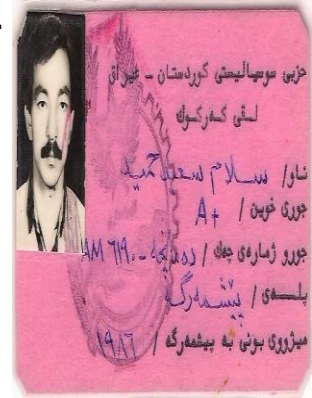 حزبی سوسیالیستی کوردستان - عیراق
لـقی کـەرکـوك
ناو/ ســلام سعید حمید
جوری خوین / A+
جورو ژمارەی چەك / AM ٦١٩٠٠
پلــەی / پێشــمەرگــە
میژروی بونی بە پیشمەرگە / ١٩٨٦